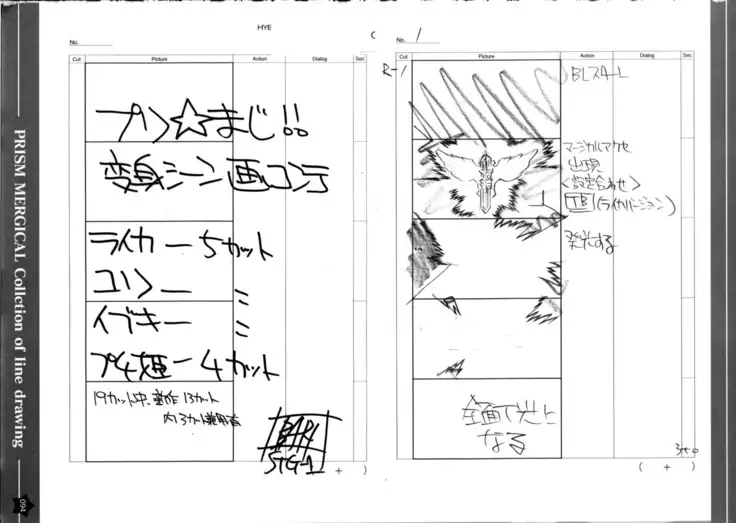 PRISM MERGICAL Collction of line drawing
094
HYE
No.
Cut Picture Action Dialog Sec
プリ☆まじ!!
変身シーン画コンテ
ライカー5カット
コリンー 〃
イブキー 〃
プチ姫ー4カット
19カット中、新作13カット
内3カット兼用有
STG-1
( + )
C
No. 1
Cut Picture Action Dialog Sec
R-1
BLスタート
マージカルマケセ
出現
<設定合わせ>
(ライカバージョン)
発光する
全面で光と
なる
3+0
( + )